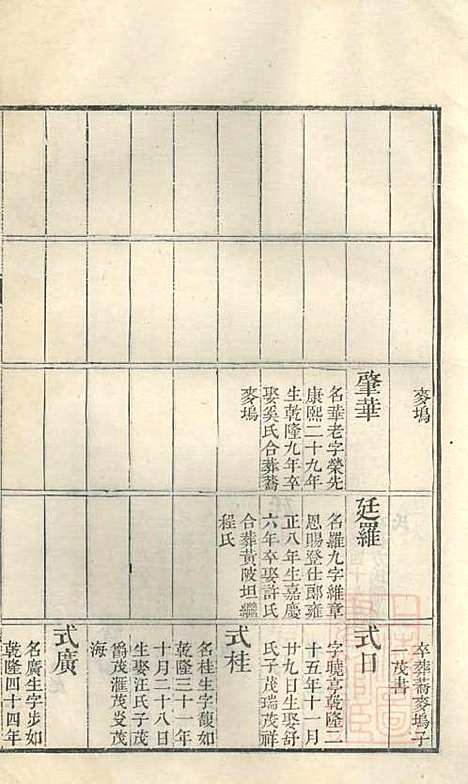 麥塢
肇華
名華老字榮先
康熙二十九年
生乾隆九年卒
娶奚氏合葬蕎
麥塢
廷羅
名羅九字維章
恩賜登仕郎雍
正八年生嘉慶
六年卒娶許氏
合葬黃陂坦繼
程氏
卒葬蕎麥塢子
一茂書
式日
字曉亭乾隆二
十五年十一月
廿九日生娶舒
氏子茂瑞茂祥
式桂
名桂生字馥如
乾隆三十一年
十月二十八日
生娶汪氏子茂
爲茂滙茂旻茂
海
式廣
名廣生字步如
乾隆四十四年